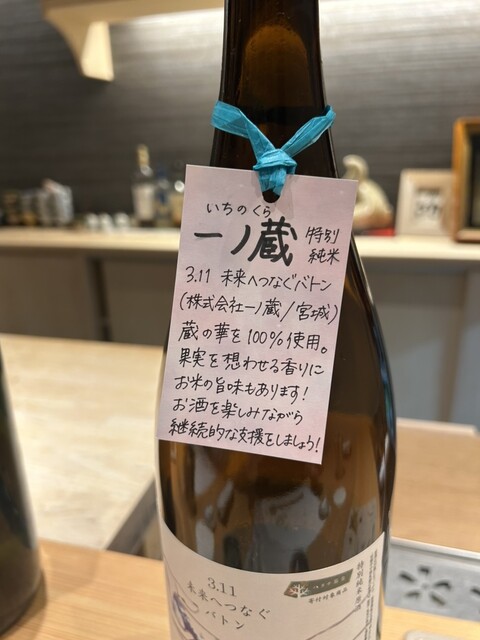 いちのくら
一ノ蔵 特別
純米
3.11 未来へつなぐバトン
(株式会社一ノ蔵/宮城)
蔵の華を100%使用。
果実を想わせる香りに
お米の旨味もあります!
お酒を楽しみながら
継続的な支援をしましょう!
3.11
未来へつなぐ
バトン
寄付対象商品
特別純米原酒